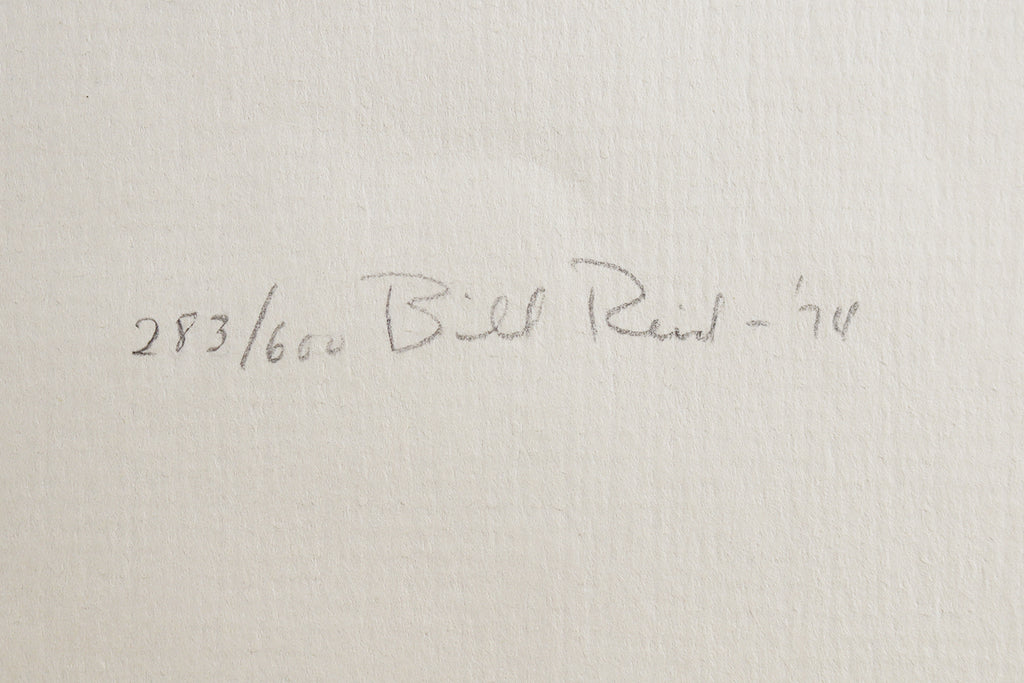 283/600 Bill Reid - '74